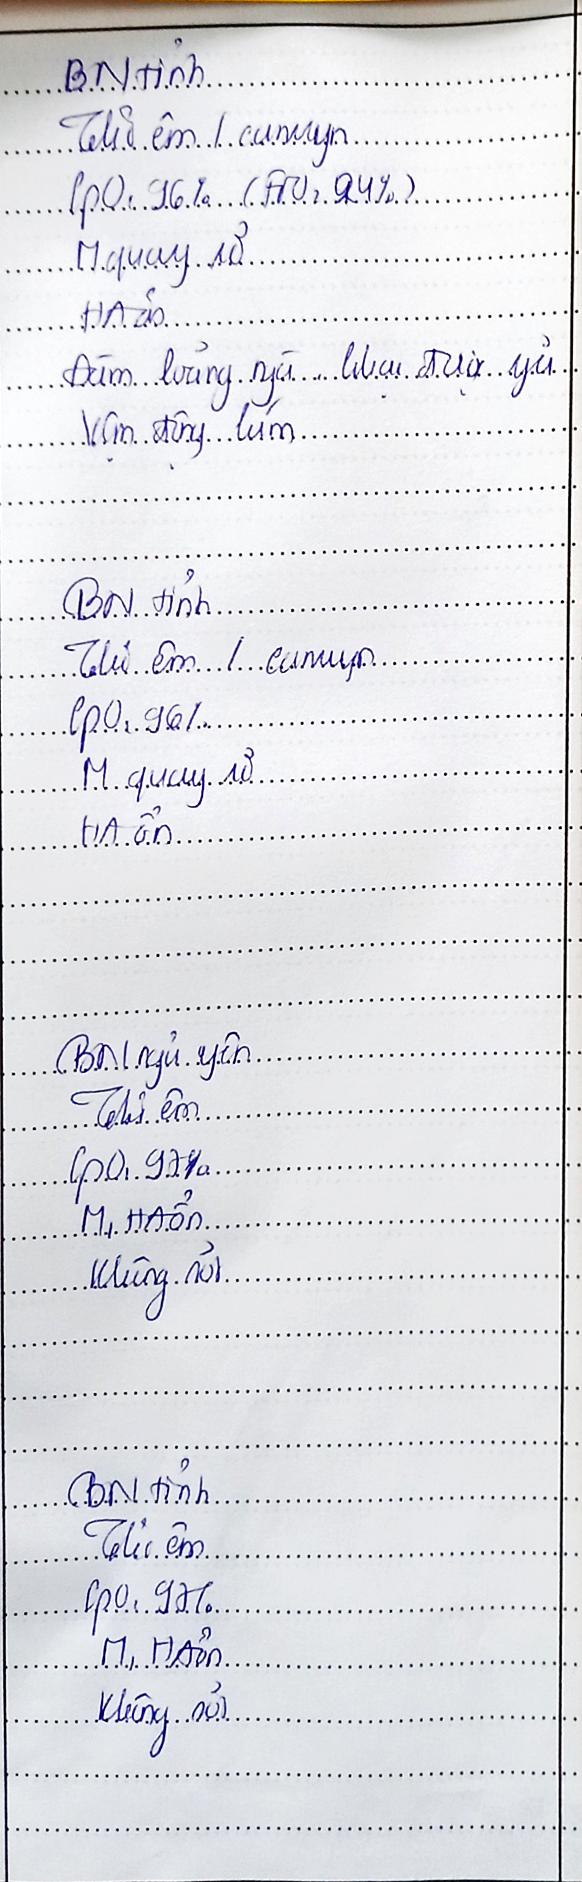 BN tỉnh
Thở êm / canuyn
SpO₂ 96% (KTO₂ 94%)
M quay rõ
HA ổn
Đàm loãng ngà khạc được yếu
Vận động kém
BN tỉnh
Thở êm / canuyn
SpO₂ 96%
M quay rõ
HA ổn
BN ngủ yên
Thở êm
SpO₂ 97%
M, HA ổn
Không sốt
BN tỉnh
Thở êm
SpO₂ 97%
M, HA ổn
Không sốt